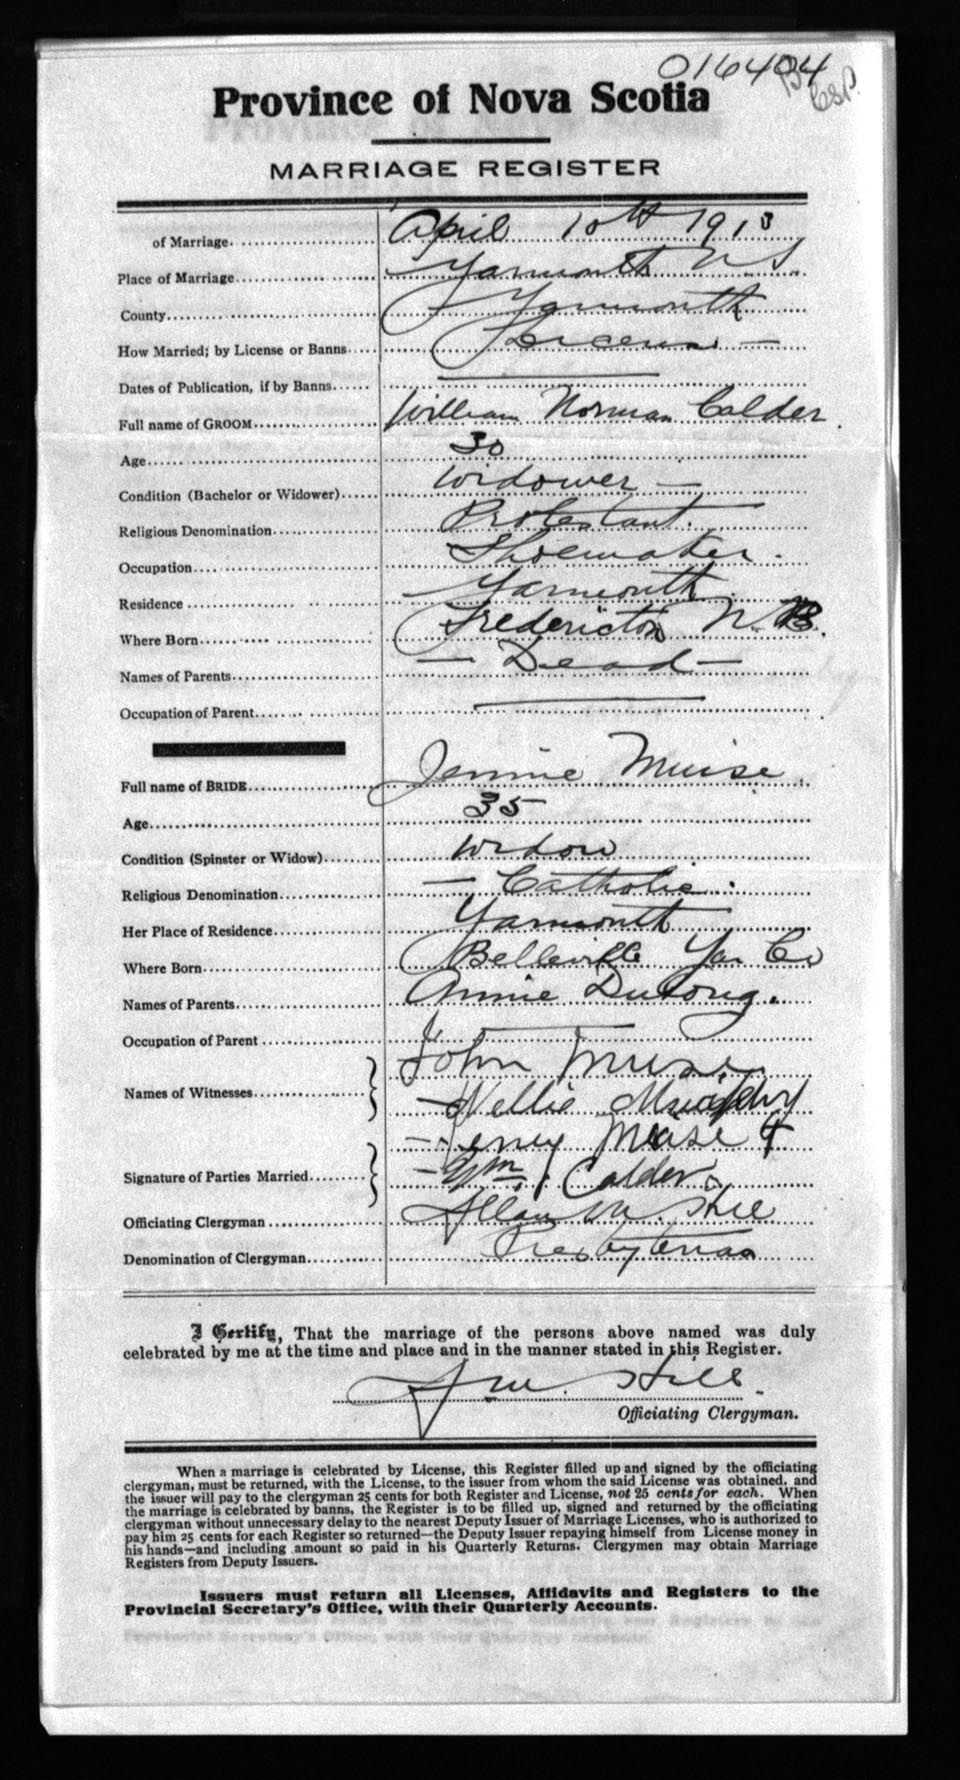 016404
B
Province of Nova Scotia
MARRIAGE REGISTER
of Marriage April 10th 1913
Place of Marriage Yarmouth N.S.
County Yarmouth
How Married; by License or Banns License —
Dates of Publication, if by Banns —
Full name of GROOM William Norman Calder.
Age 30
Condition (Bachelor or Widower) Widower —
Religious Denomination Protestant.
Occupation Shoemaker.
Residence Yarmouth.
Where Born Fredericton N.B.
Names of Parents — Dead —
Occupation of Parent —
Full name of BRIDE Jennie Muise.
Age 35
Condition (Spinster or Widow) Widow
Religious Denomination — Catholic.
Her Place of Residence Yarmouth
Where Born Belleville Yar Co
Names of Parents Annie Dulong.
Occupation of Parent —
Names of Witnesses John Muise
Nellie
Muise
Signature of Parties Married Wm Calder
Officiating Clergyman Allan M. Hill
Denomination of Clergyman Presbyterian
I Certify, That the marriage of the persons above named was duly
celebrated by me at the time and place and in the manner stated in this Register.
A.M. Hill.
Officiating Clergyman.
When a marriage is celebrated by License, this Register filled up and signed by the officiating
clergyman, must be returned, with the License, to the issuer from whom the said License was obtained, and
the issuer will pay to the clergyman 25 cents for both Register and License, not 25 cents for each. When
the marriage is celebrated by banns, the Register is to be filled up, signed and returned by the officiating
clergyman without unnecessary delay to the nearest Deputy Issuer of Marriage Licenses, who is authorized to
pay him 25 cents for each Register so returned—the Deputy Issuer repaying himself from License money in
his hands—and including amount so paid in his Quarterly Returns. Clergymen may obtain Marriage
Registers from Deputy Issuers.
Issuers must return all Licenses, Affidavits and Registers to the
Provincial Secretary's Office, with their Quarterly Accounts.